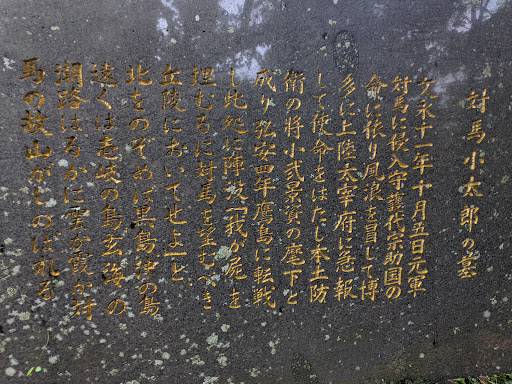 対馬小太郎の墓
文永十一年十月五日元軍
対馬に侵入守護代宗助国の
命に依り風浪を冒して博
多に上陸太宰府に急報
して使命をはたし本土防
衛の将小弐景資の麾下と
成り弘安四年鷹島に転戦
し此処に陣歿「我が屍を
埋むるに対馬を望むべき
丘陵においてせよ」と
北をのぞめば黒島沖の島
遠くは壱岐の島玄海の
潮路はるかに雲か霞か対
馬の故山がしのばれる